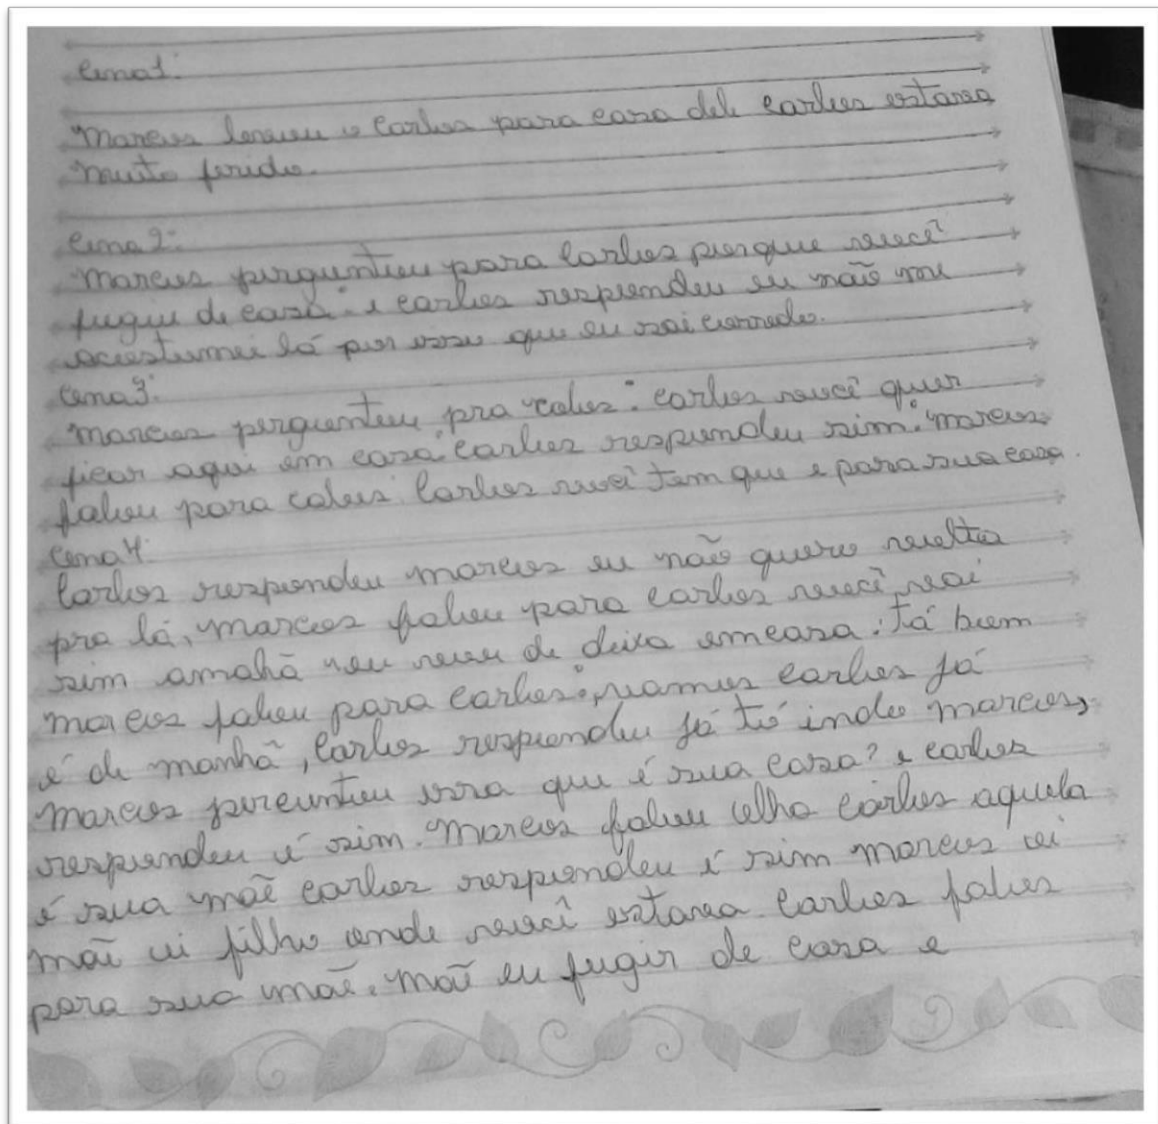 Cena1:
Marcos levou o Carlos para casa dele Carlos estava
muito ferido.
Cena2:
Marcos perguntou para Carlos porque você
fugiu de casa: e Carlos respondeu eu não me
acostumei lá por isso que eu sai corredo.
Cena3:
Marcos perguntou pra calos: Carlos você quer
ficar aqui em casa: Carlos respondeu sim: Marcos
falou para calos: Carlos você tem que e para sua casa.
Cena4:
Carlos respondeu marcos eu não quero volta
pra lá, marcos falou para Carlos você vai
sim amahã eu vou de deixa em casa: Tá bom
marcos falou para Carlos: vamos Carlos já
é de manhã, Carlos respondeu já tó indo marcos,
Marcos percuntou essa que é sua casa? e Carlos
respondeu é sim. Marcos falou olha Carlos aquela
é sua mãe Carlos respondeu é sim marcos oi
mãe oi filho onde você estava. Carlos falos
para sua mãe. mãe eu fugir de casa e